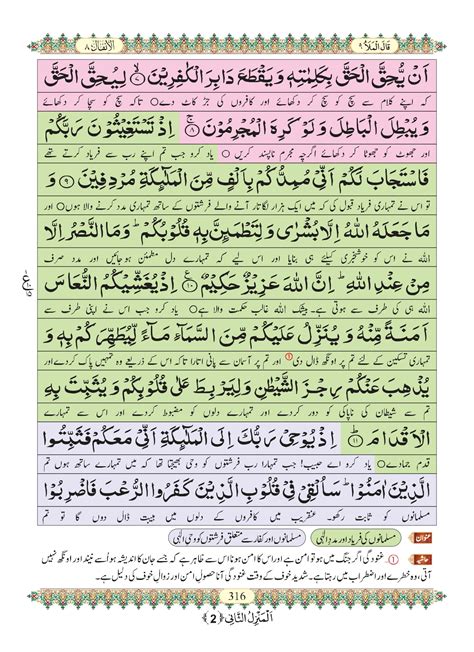 قَالَ الْمَلَاُ ۹
الْاَنْفَال ۸
اَنْ يُّحِقَّ الْحَقَّ بِكَلِمٰتِهٖ وَ يَقْطَعَ دَابِرَ الْكٰفِرِيْنَ ۝۷ لِيُحِقَّ الْحَقَّ
کہ اپنے کلام سے سچ کو سچ کر دکھائے اور کافروں کی جڑ کاٹ دے ○ تاکہ سچ کو سچا کر دکھائے
وَ يُبْطِلَ الْبَاطِلَ وَ لَوْ كَرِهَ الْمُجْرِمُوْنَ ۝۸ اِذْ تَسْتَغِيْثُوْنَ رَبَّكُمْ
اور جھوٹ کو جھوٹا کر دکھائے اگرچہ مجرم ناپسند کریں ○ یاد کرو جب تم اپنے رب سے فریاد کرتے تھے
فَاسْتَجَابَ لَكُمْ اَنِّيْ مُمِدُّكُمْ بِاَلْفٍ مِّنَ الْمَلٰٓىِٕكَةِ مُرْدِفِيْنَ ۝۹ وَ
تو اس نے تمہاری فریاد قبول کی کہ میں ایک ہزار لگاتار آنے والے فرشتوں کے ساتھ تمہاری مدد کرنے والا ہوں ○ اور
مَا جَعَلَهُ اللّٰهُ اِلَّا بُشْرٰى وَ لِتَطْمَىِٕنَّ بِهٖ قُلُوْبُكُمْ ۚ وَ مَا النَّصْرُ اِلَّا
اللہ نے اس کو خوشخبری کیلئے ہی بنایا اور اس لیے کہ تمہارے دل مطمئن ہوجائیں اور مدد صرف
مِنْ عِنْدِ اللّٰهِ ؕ اِنَّ اللّٰهَ عَزِيْزٌ حَكِيْمٌ ۝۱۰ اِذْ يُغَشِّيْكُمُ النُّعَاسَ
اللہ ہی کی طرف سے ہوتی ہے۔ بیشک اللہ غالب حکمت والا ہے ○ یاد کرو جب اس نے اپنی طرف سے
اَمَنَةً مِّنْهُ وَ يُنَزِّلُ عَلَيْكُمْ مِّنَ السَّمَآءِ مَآءً لِّيُطَهِّرَكُمْ بِهٖ وَ
تمہاری تسکین کے لئے تم پر اونگھ ڈال دی ① اور تم پر آسمان سے پانی اتارا تاکہ اس کے ذریعے وہ تمہیں پاک کردے اور
يُذْهِبَ عَنْكُمْ رِجْزَ الشَّيْطٰنِ وَ لِيَرْبِطَ عَلٰى قُلُوْبِكُمْ وَ يُثَبِّتَ بِهِ
تم سے شیطان کی ناپاکی کو دور کردے اور تمہارے دلوں کو مضبوط کردے اور اس سے تمہارے
الْاَقْدَامَ ؕ ۝۱۱ اِذْ يُوْحِيْ رَبُّكَ اِلَى الْمَلٰٓىِٕكَةِ اَنِّيْ مَعَكُمْ فَثَبِّتُوا
قدم جمادے ○ یاد کرو اے حبیب! جب تمہارا رب فرشتوں کو وحی بھیجتا تھا کہ میں تمہارے ساتھ ہوں تم
الَّذِيْنَ اٰمَنُوْا ؕ سَاُلْقِيْ فِيْ قُلُوْبِ الَّذِيْنَ كَفَرُوا الرُّعْبَ فَاضْرِبُوْا
مسلمانوں کو ثابت رکھو۔ عنقریب میں کافروں کے دلوں میں ہیبت ڈال دوں گا تو تم
عنوان مسلمانوں کی فریاد اور مددِ الٰہی مسلمانوں اور کفار سے متعلق فرشتوں کو وحی الٰہی
حاشیہ ①۔ غنودگی اگر جنگ میں ہو تو امن ہے اور اس کا امن ہونا اس سے ظاہر ہے کہ جسے جان کا اندیشہ ہو اُسے نیند اور اونگھ نہیں
آتی، وہ خطرے اور اضطراب میں رہتا ہے۔ شدید خوف کے وقت غنودگی آنا حصولِ امن اور زوالِ خوف کی دلیل ہے۔
316
اَلْمَنْزِلُ الثَّانِي ﴿2﴾